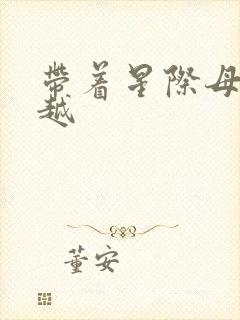 帶着星際母
越
董安